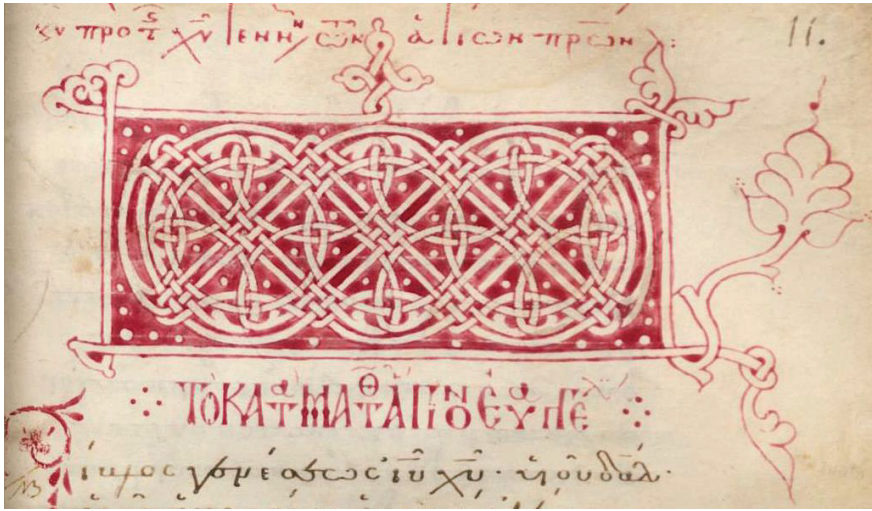 κυ προ τ χυ γεννη τῶν ἁγίων πρων :
11.
ΤΟ ΚΑΤ ΜΑΤΘ ΑΓΙΟΝ ΕΥΑΓΓΕ
Βίβλος γενέσεως ἰυ χυ· υἱοῦ δαδ·